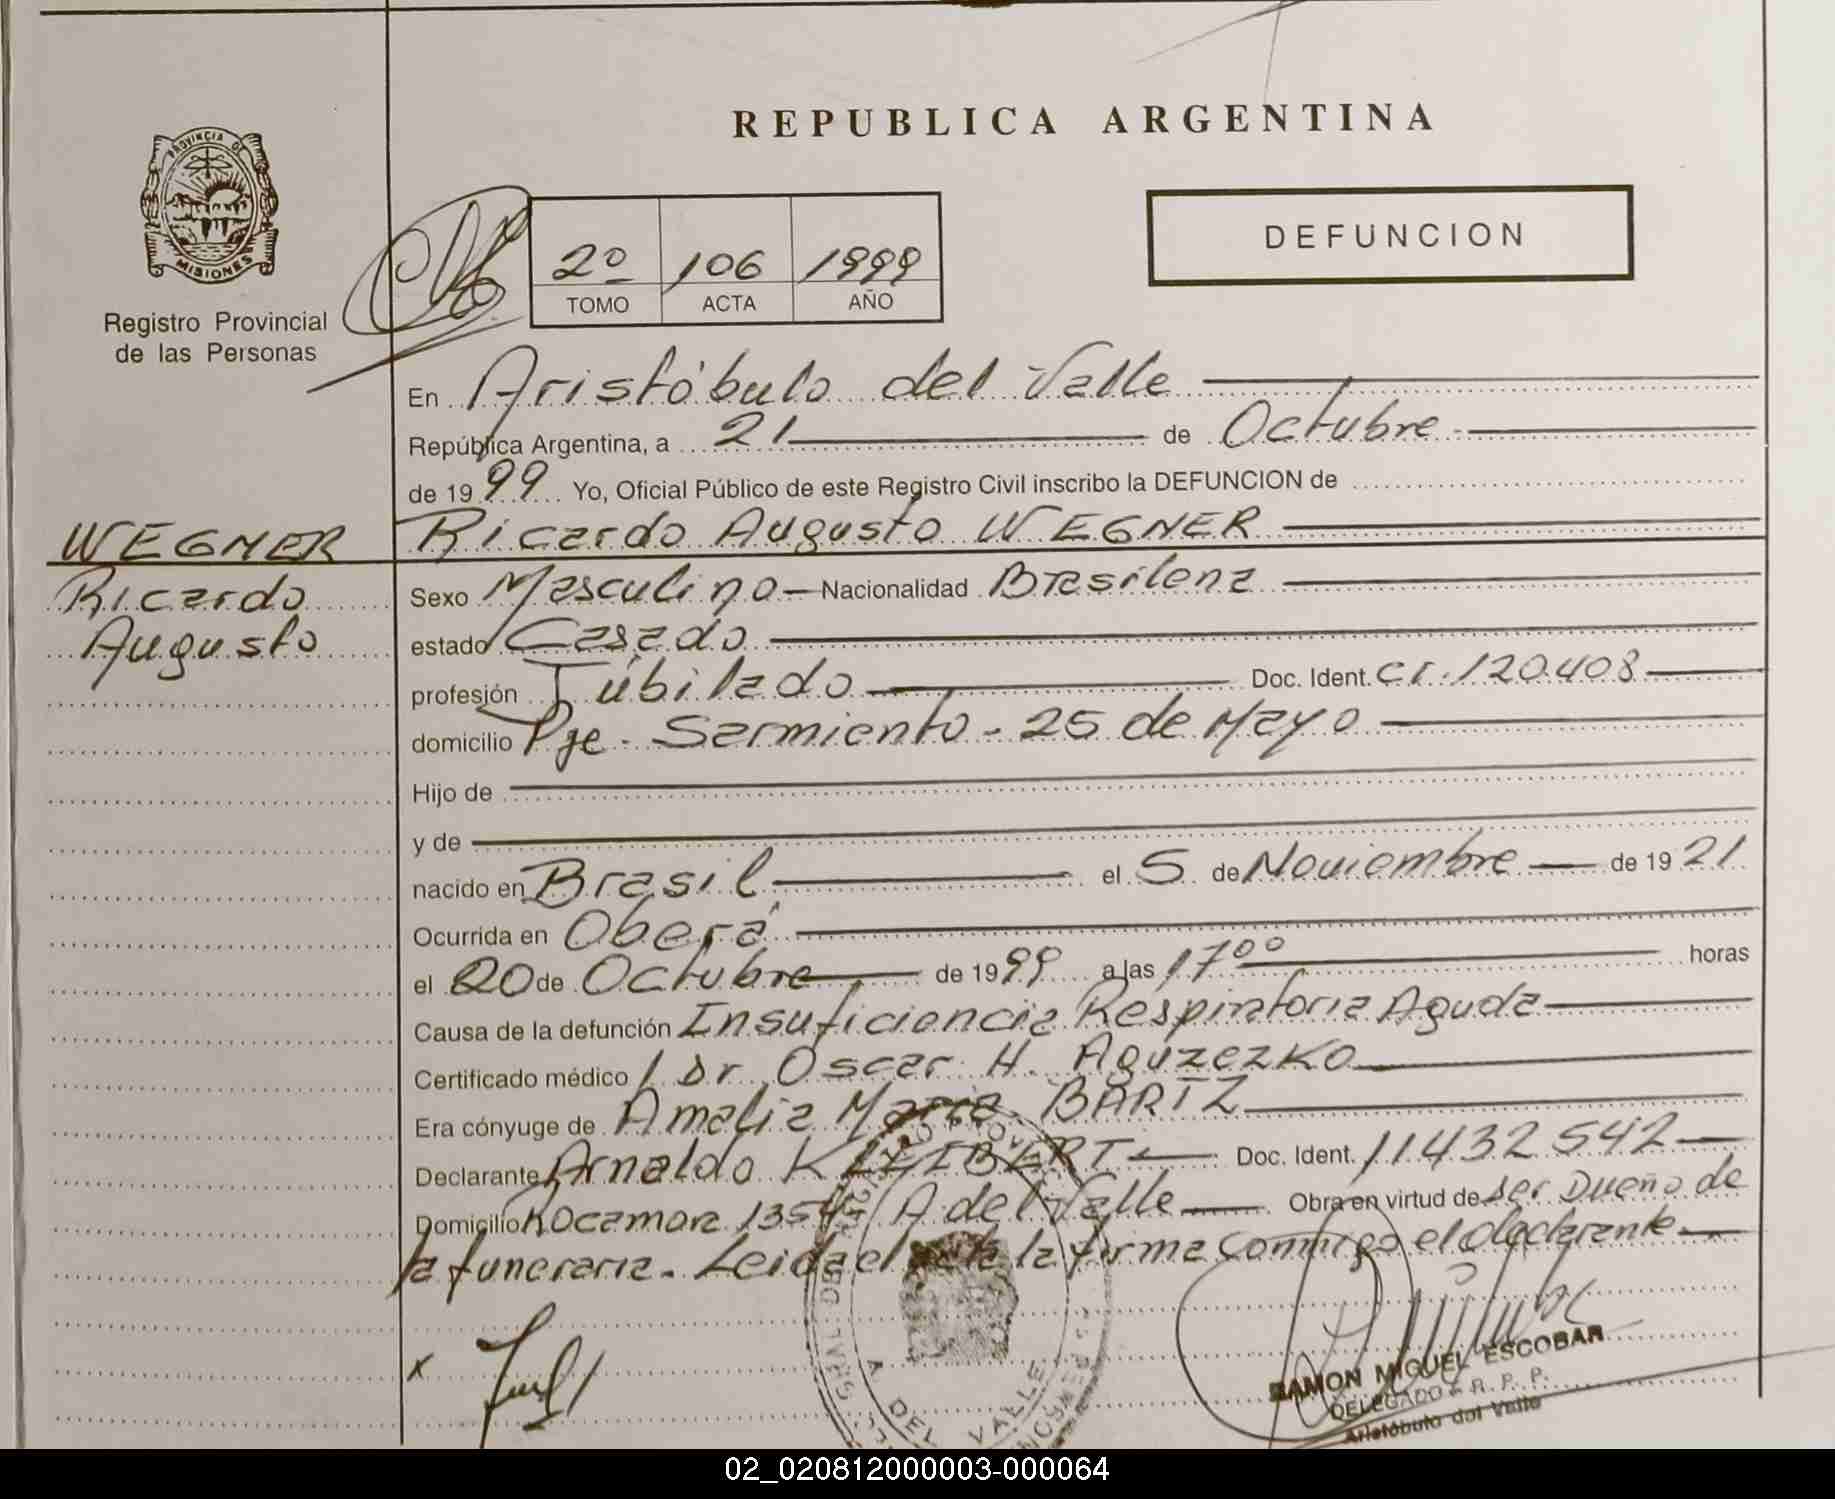 REPUBLICA ARGENTINA
PROVINCIA DE
MISIONES
Registro Provincial
de las Personas
2º 106 1999
TOMO ACTA AÑO
DEFUNCION
En Aristóbulo del Valle
República Argentina, a 21 de Octubre
de 1999 Yo, Oficial Público de este Registro Civil inscribo la DEFUNCION de
WEGNER
Ricardo
Augusto
Ricardo Augusto WEGNER
Sexo Masculino Nacionalidad Brasilena
estado Casado
profesión Jubilado Doc. Ident. C.I. 120.408
domicilio Pje. Sarmiento - 25 de Mayo
Hijo de
y de
nacido en Brasil el 5 de Noviembre de 1921
Ocurrida en Oberá
el 20 de Octubre de 1999 a las 17⁰⁰ horas
Causa de la defunción Insuficiencia Respiratoria Aguda
Certificado médico Dr Oscar H. Aguzezko
Era cónyuge de Amalia Maria BARTZ
Declarante Arnaldo KLEIBERT Doc. Ident. 11432542
Domicilio 1354 A del Valle Obra en virtud de ser Dueño de
la funeraria. Leida el acta la firma conmigo el declarante
x
A. DEL VALLE
RAMON MIGUEL ESCOBAR
DELEGADO R. P. P.
Aristóbulo del Valle
02_020812000003-000064